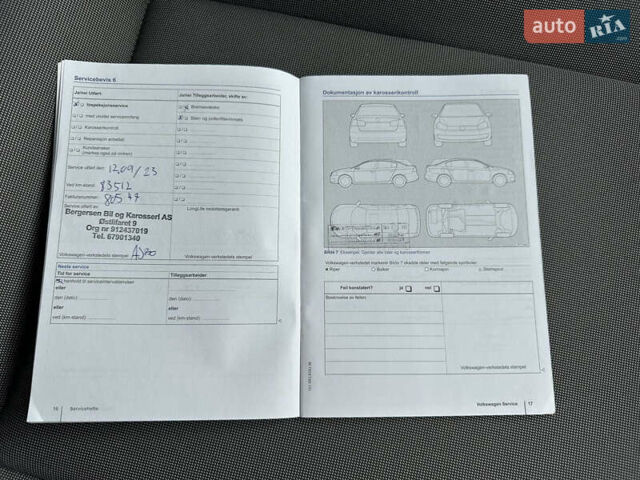 auto RIA .com
Servicebevis 6
Ja/nei Utført:
Ja/nei Tilleggsarbeider, skifte av:
Inspeksjonsservice
Bremsevæske
med utvidet serviceomfang
Støv- og pollenfilterinnsats
Karosserikontroll
Reparasjon anbefalt
Kundeønsker
(merkes også på ordren)
Service utført den: 12/09/23
Ved km-stand: 83512
Fakturanummer:
Service utført av:
LongLife mobilitetsgaranti
Bergersen Bil og Karosseri AS
Østlifaret 9
Org nr 912437019
Tel. 67901340
Volkswagen-verkstedets stempel
Neste service
Tid for service
Tilleggsarbeider
I henhold til serviceintervallviseren
eller
den (dato)
den (dato)
eller
eller
ved (km-stand)
ved (km-stand)
16 Servicehefte
Dokumentasjon av karosserikontroll
Bilde 7
Volkswagen-verkstedet markerer Bilde 7 skadde deler med følgende symboler:
Riper
Bulker
Korrosjon
Steinsprut
Feil konstatert? ja nei
Beskrivelse av feilen:
Volkswagen-verkstedets stempel
Volkswagen Service 17